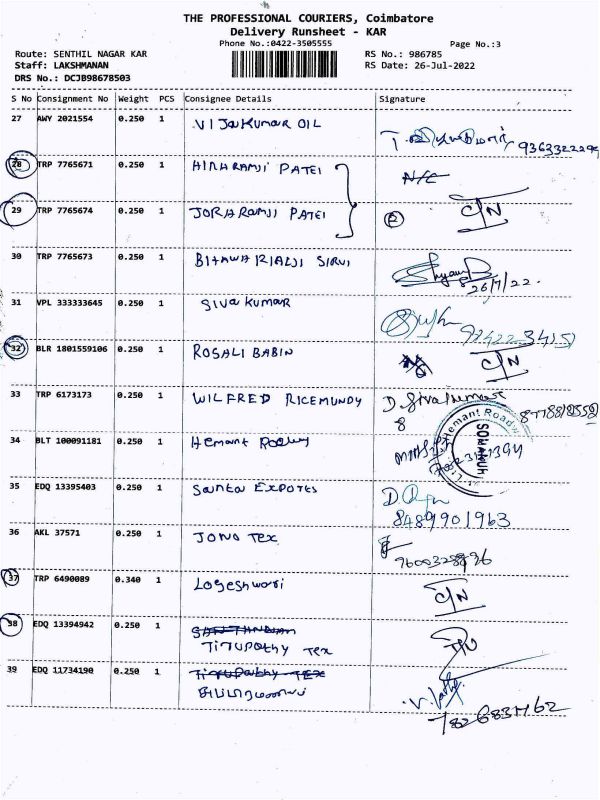 THE PROFESSIONAL COURIERS, Coimbatore
Delivery Runsheet - KAR
Phone No.:0422-3505555
Page No.:3
Route: SENTHIL NAGAR KAR
RS No.: 986785
Staff: LAKSHMANAN
RS Date: 26-Jul-2022
DRS No.: DCJB98678503
S No Consignment No Weight PCS Consignee Details Signature
27 AWY 2021554 0.250 1 VIJaykumar OIL
28 TRP 7765671 0.250 1 HIRARAMJI PATEI N/C
29 TRP 7765674 0.250 1 JORARAMJI PATEI C/N
30 TRP 7765673 0.250 1
26/7/22.
31 VPL 333333645 0.250 1 Siva kumar
32 BLR 1801559106 0.250 1 ROSALI BABIN C/N
33 TRP 6173173 0.250 1 WILFRED RICEMUNDY D. Sivakumar
34 BLT 100091181 0.250 1 Hemant
Hemant Roadw
35 EDQ 13395403 0.250 1 EXPOTES
8489901963
36 AKL 37571 0.250 1 JONO TEX
37 TRP 6490089 0.340 1 Logeshwari C/N
38 EDQ 13394942 0.250 1
Tirupathy Tex
39 EDQ 11734190 0.250 1 Tirupathy TEX